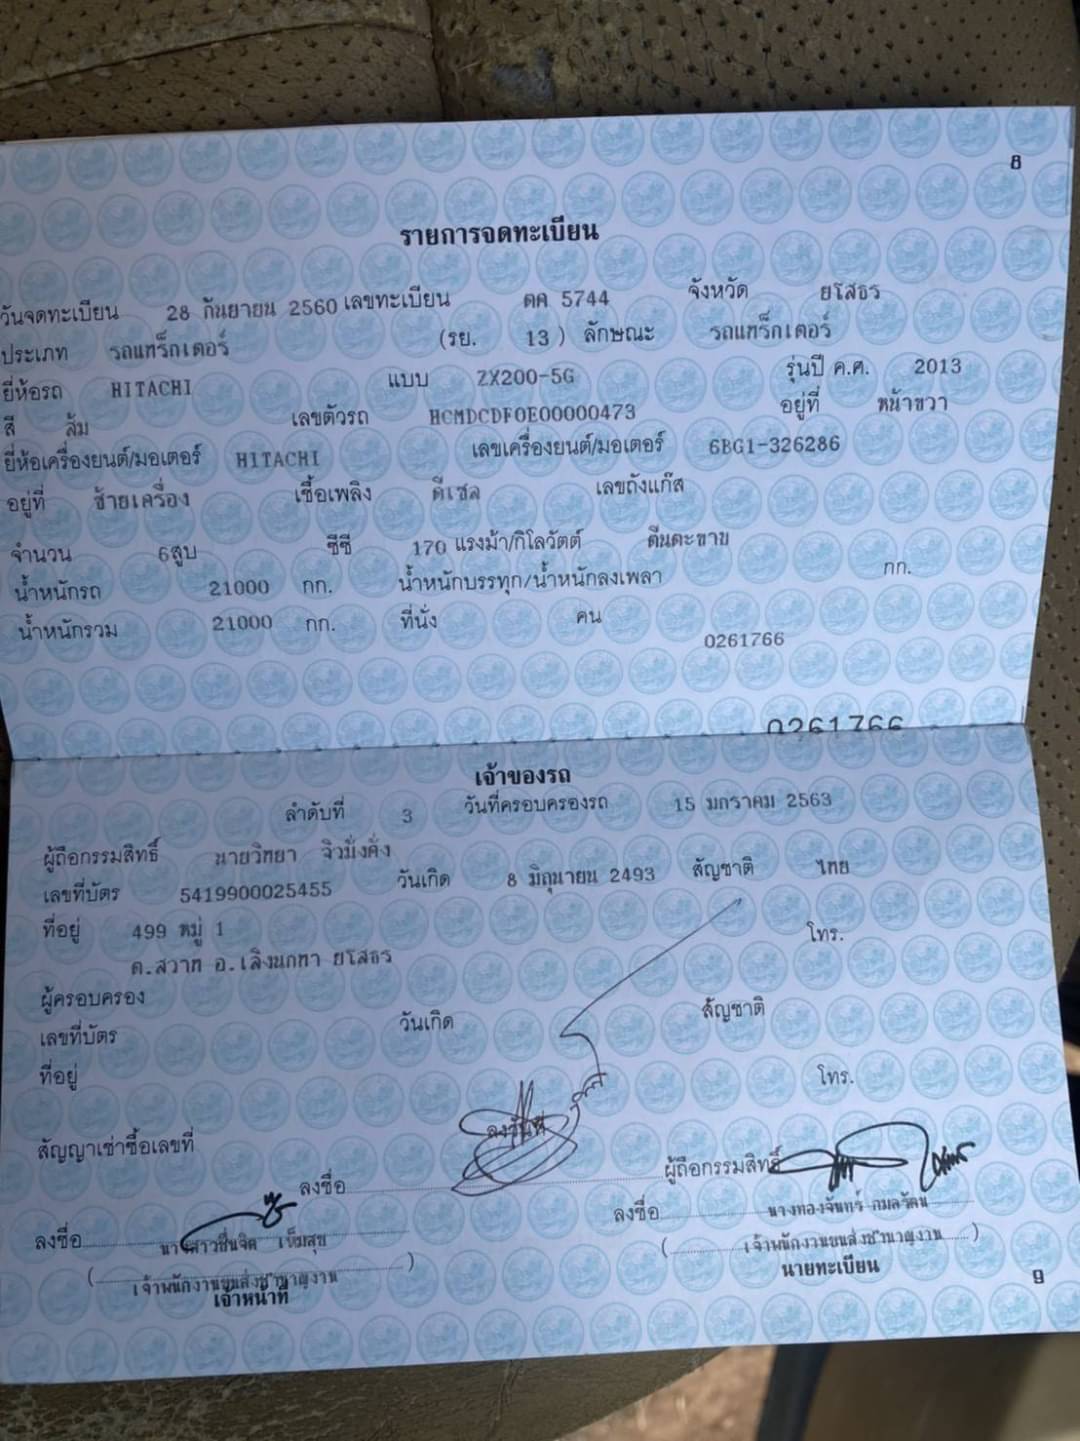 8
รายการจดทะเบียน
วันจดทะเบียน 28 กันยายน 2560 เลขทะเบียน ตค 5744 จังหวัด ยโสธร
ประเภท รถแทร็กเตอร์ (รย. 13 ) ลักษณะ รถแทร็กเตอร์
ยี่ห้อรถ HITACHI แบบ ZX200-5G รุ่นปี ค.ศ. 2013
สี ส้ม เลขตัวรถ HCMDCDF0E00000473 อยู่ที่ หน้าขวา
ยี่ห้อเครื่องยนต์/มอเตอร์ HITACHI เลขเครื่องยนต์/มอเตอร์ 6BG1-326286
อยู่ที่ ซ้ายเครื่อง เชื้อเพลิง ดีเซล เลขถังแก๊ส
จำนวน 6สูบ ซีซี 170 แรงม้า/กิโลวัตต์ ตีนตะขาบ
น้ำหนักรถ 21000 กก. น้ำหนักบรรทุก/น้ำหนักลงเพลา กก.
น้ำหนักรวม 21000 กก. ที่นั่ง คน
0261766
0261766
เจ้าของรถ
ลำดับที่ 3 วันที่ครอบครองรถ 15 มกราคม 2563
ผู้ถือกรรมสิทธิ์ นายวิทยา จิวมั่งคั่ง
เลขที่บัตร 5419900025455 วันเกิด 8 มิถุนายน 2493 สัญชาติ ไทย
ที่อยู่ 499 หมู่ 1 โทร.
ต.สวาท อ.เลิงนกทา ยโสธร
ผู้ครอบครอง
เลขที่บัตร วันเกิด สัญชาติ
ที่อยู่ โทร.
สัญญาเช่าซื้อเลขที่ ลงวันที่
ลงชื่อ ผู้ถือกรรมสิทธิ์
ลงชื่อ นางสาวชื่นจิต เข็มสุข ลงชื่อ นางทองจันทร์ กมลรัตน์
( เจ้าพนักงานขนส่งชำนาญงาน ) ( เจ้าพนักงานขนส่งชำนาญงาน )
เจ้าหน้าที่ นายทะเบียน
9